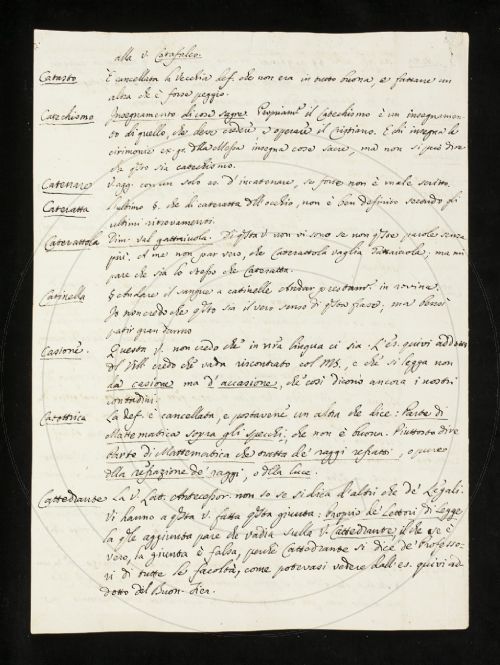 alla v. Catafalco.
Catasto È cancellata la vecchia def. che non era in tutto buona, e fattane un
altra che è forse peggio.
Catechismo Insegnamento di cose sagre. Propriam. il Catechismo è un insegnamen-
to di quello, che deve credere, e operare il Cristiano. E chi insegna le
cirimonie ex gr. della Messa insegna cose sacre, ma non si può dire
che qsto sia catechismo.
Catenare V. agg. con un solo es. d'incatenare, se forse non è male scritto.
Cateratta L'ultimo §. che di cateratta dell'occhio, non è ben definito secondo gli
ultimi ritrovamenti.
Caterattola Dim. val gattaiuola. Di qsta v. non vi sono se non qste parole senza
più. A me non par vero, che Caterattola vaglia Gattaiuola; ma mi
pare che sia lo stesso che Cateratta.
Catinella § Andare il sangue a catinelle Andar prestam. in rovina.
Io non credo che qsto sia il vero senso di qsta frase; ma bensì
patir gran danno
Casione. Questa v. non credo che in nra lingua ci sia. L'es. quivi addotto
del Vill. credo che vada riscontrato col MS., e che si legga non
da casione ma d'accasione, che così dicono ancora i nostri
contadini.
Catottrica La def. è cancellata, e postavene un altra che dice: Parte di
Matematica sopra gli specchi, che non è buona. Piuttosto dire
Parte di Matematica che tratta de' raggi refratti, o pure
della refrazione de' raggi, o della luce.
Cattedrante La v. Lat. Antecessor. non so se si dica d'altri che de' Legali.
Vi hanno a qsta v. fatta qsta giunta: proprio de' Lettori di Legge
la qle aggiunta pare che vadia sulla v. Cattedrante, il che se è
vero, la giunta è falsa, perchè Cattedrante si dice de' Professo-
ri di tutte le facoltà, come potevasi vedere dall'es. quivi ad-
dotto del Buon. Fier.